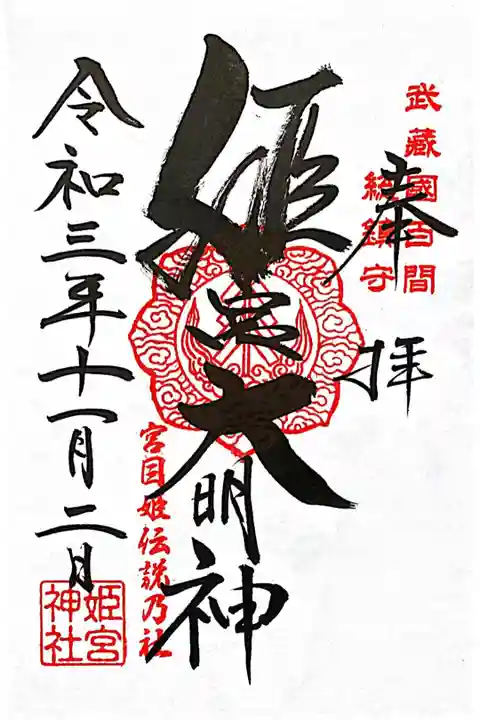 武藏國百間
總鎮守
奉拝
姫宮大明神
宮目姫伝説乃社
令和三年十一月二日
姫宮
神社